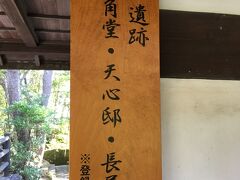 遺跡
角堂・天心邸・長
※登